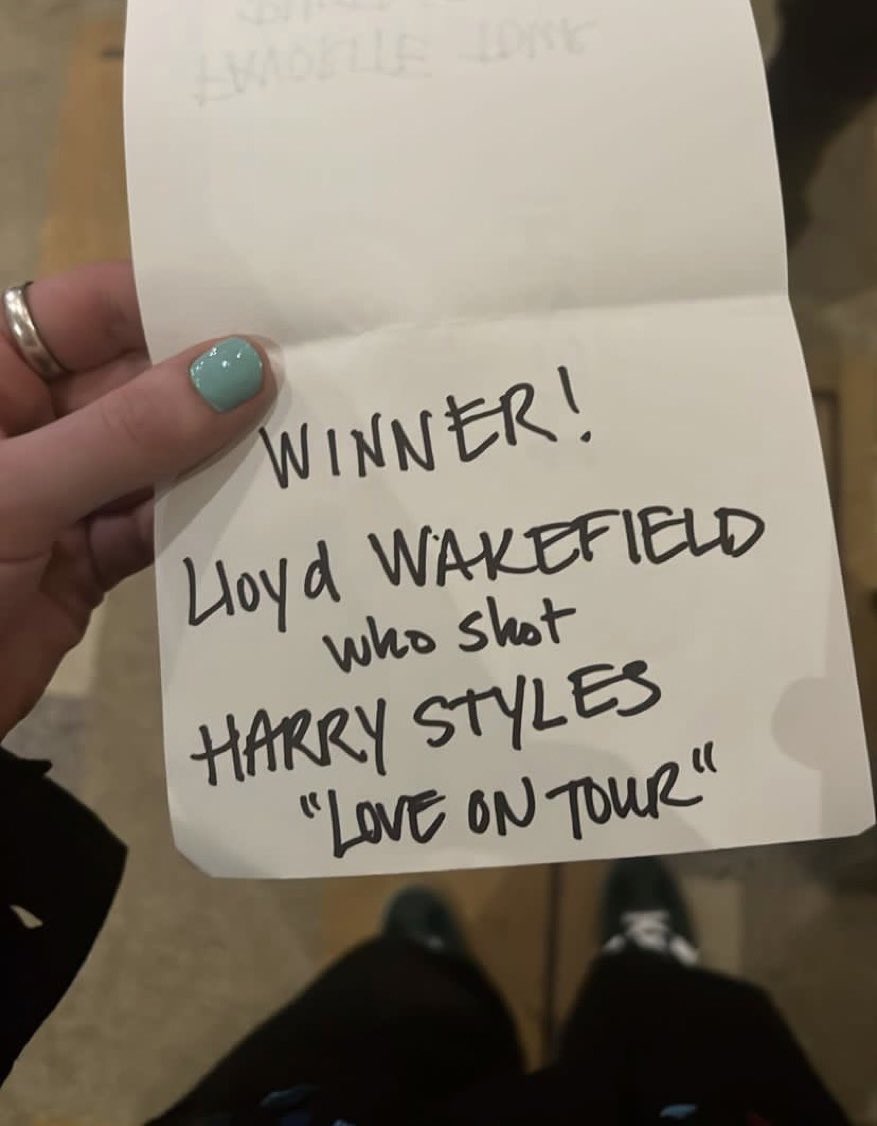 WINNER!
Lloyd WAKEFIELD
who shot
HARRY STYLES
"LOVE ON TOUR"